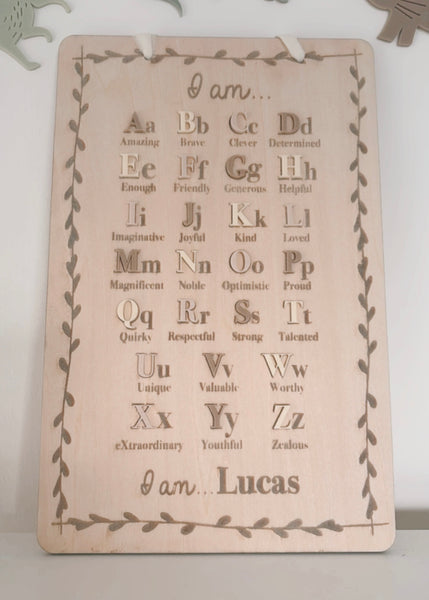 I am...
Aa Bb Cc Dd
Amazing Brave Clever Determined
Ee Ff Gg Hh
Enough Friendly Generous Helpful
Ii Jj Kk Ll
Imaginative Joyful Kind Loved
Mm Nn Oo Pp
Magnificent Noble Optimistic Proud
Qq Rr Ss Tt
Quirky Respectful Strong Talented
Uu Vv Ww
Unique Valuable Worthy
Xx Yy Zz
eXtraordinary Youthful Zealous
I am...Lucas